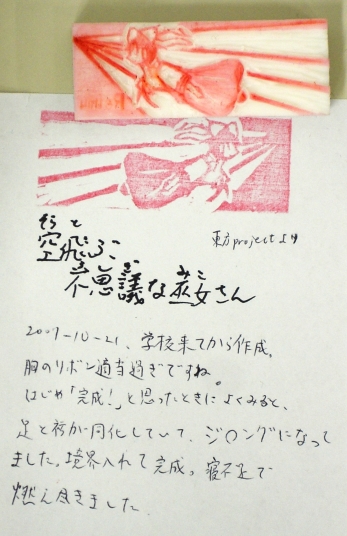 空飛ぶ
不思議な巫女さん
東方projectより
2007-10-21、学校来てから作成。
胸のリボン適当過ぎですね。
はじめ「完成!」と思ったときによくみると、
足と袴が同化していて、ジ○ングになって
ました。境界入れて完成。寝不足で
燃え尽きました。